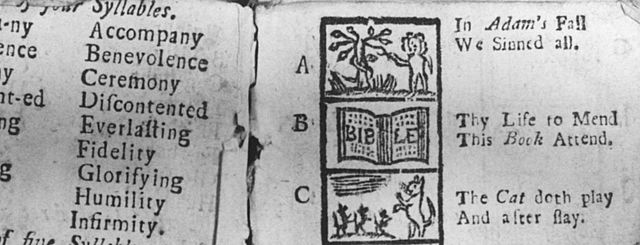 of four Syllables.
a-ny Accompany
ence Benevolence
ny Ceremony
nt-ed Diſcontented
ng Everlaſting
Fidelity
g Glorifying
Humility
Infirmity.
of five Syllables
A
In Adam's Fall
We Sinned all.
B
BIBLE
Thy Life to Mend
This Book Attend.
C
The Cat doth play
And after ſlay.